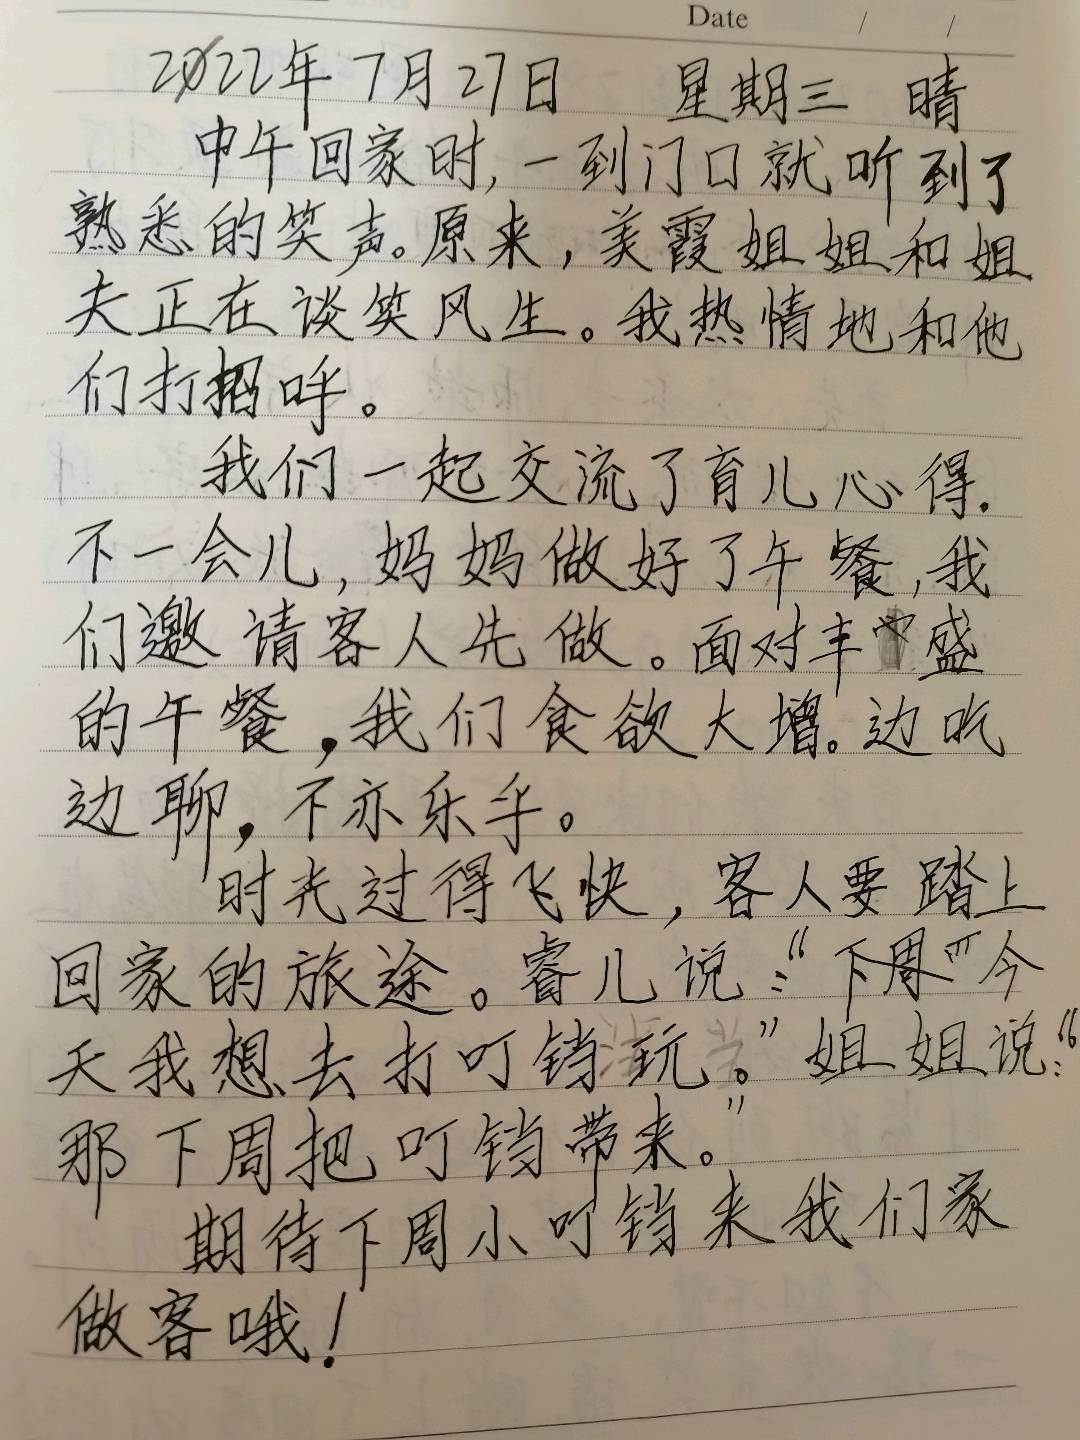 Date / /
2022年7月27日 星期三 晴
中午回家时,一到门口就听到了
熟悉的笑声。原来,美霞姐姐和姐
夫正在谈笑风生。我热情地和他
们打招呼。
我们一起交流了育儿心得.
不一会儿,妈妈做好了午餐,我
们邀请客人先做。面对丰盛
的午餐,我们食欲大增。边吃
边聊,不亦乐乎。
时光过得飞快,客人要踏上
回家的旅途。睿儿说:“下周”今
天我想去打叮铛玩。”姐姐说:“
那下周把叮铛带来。”
期待下周小叮铛来我们家
做客哦!